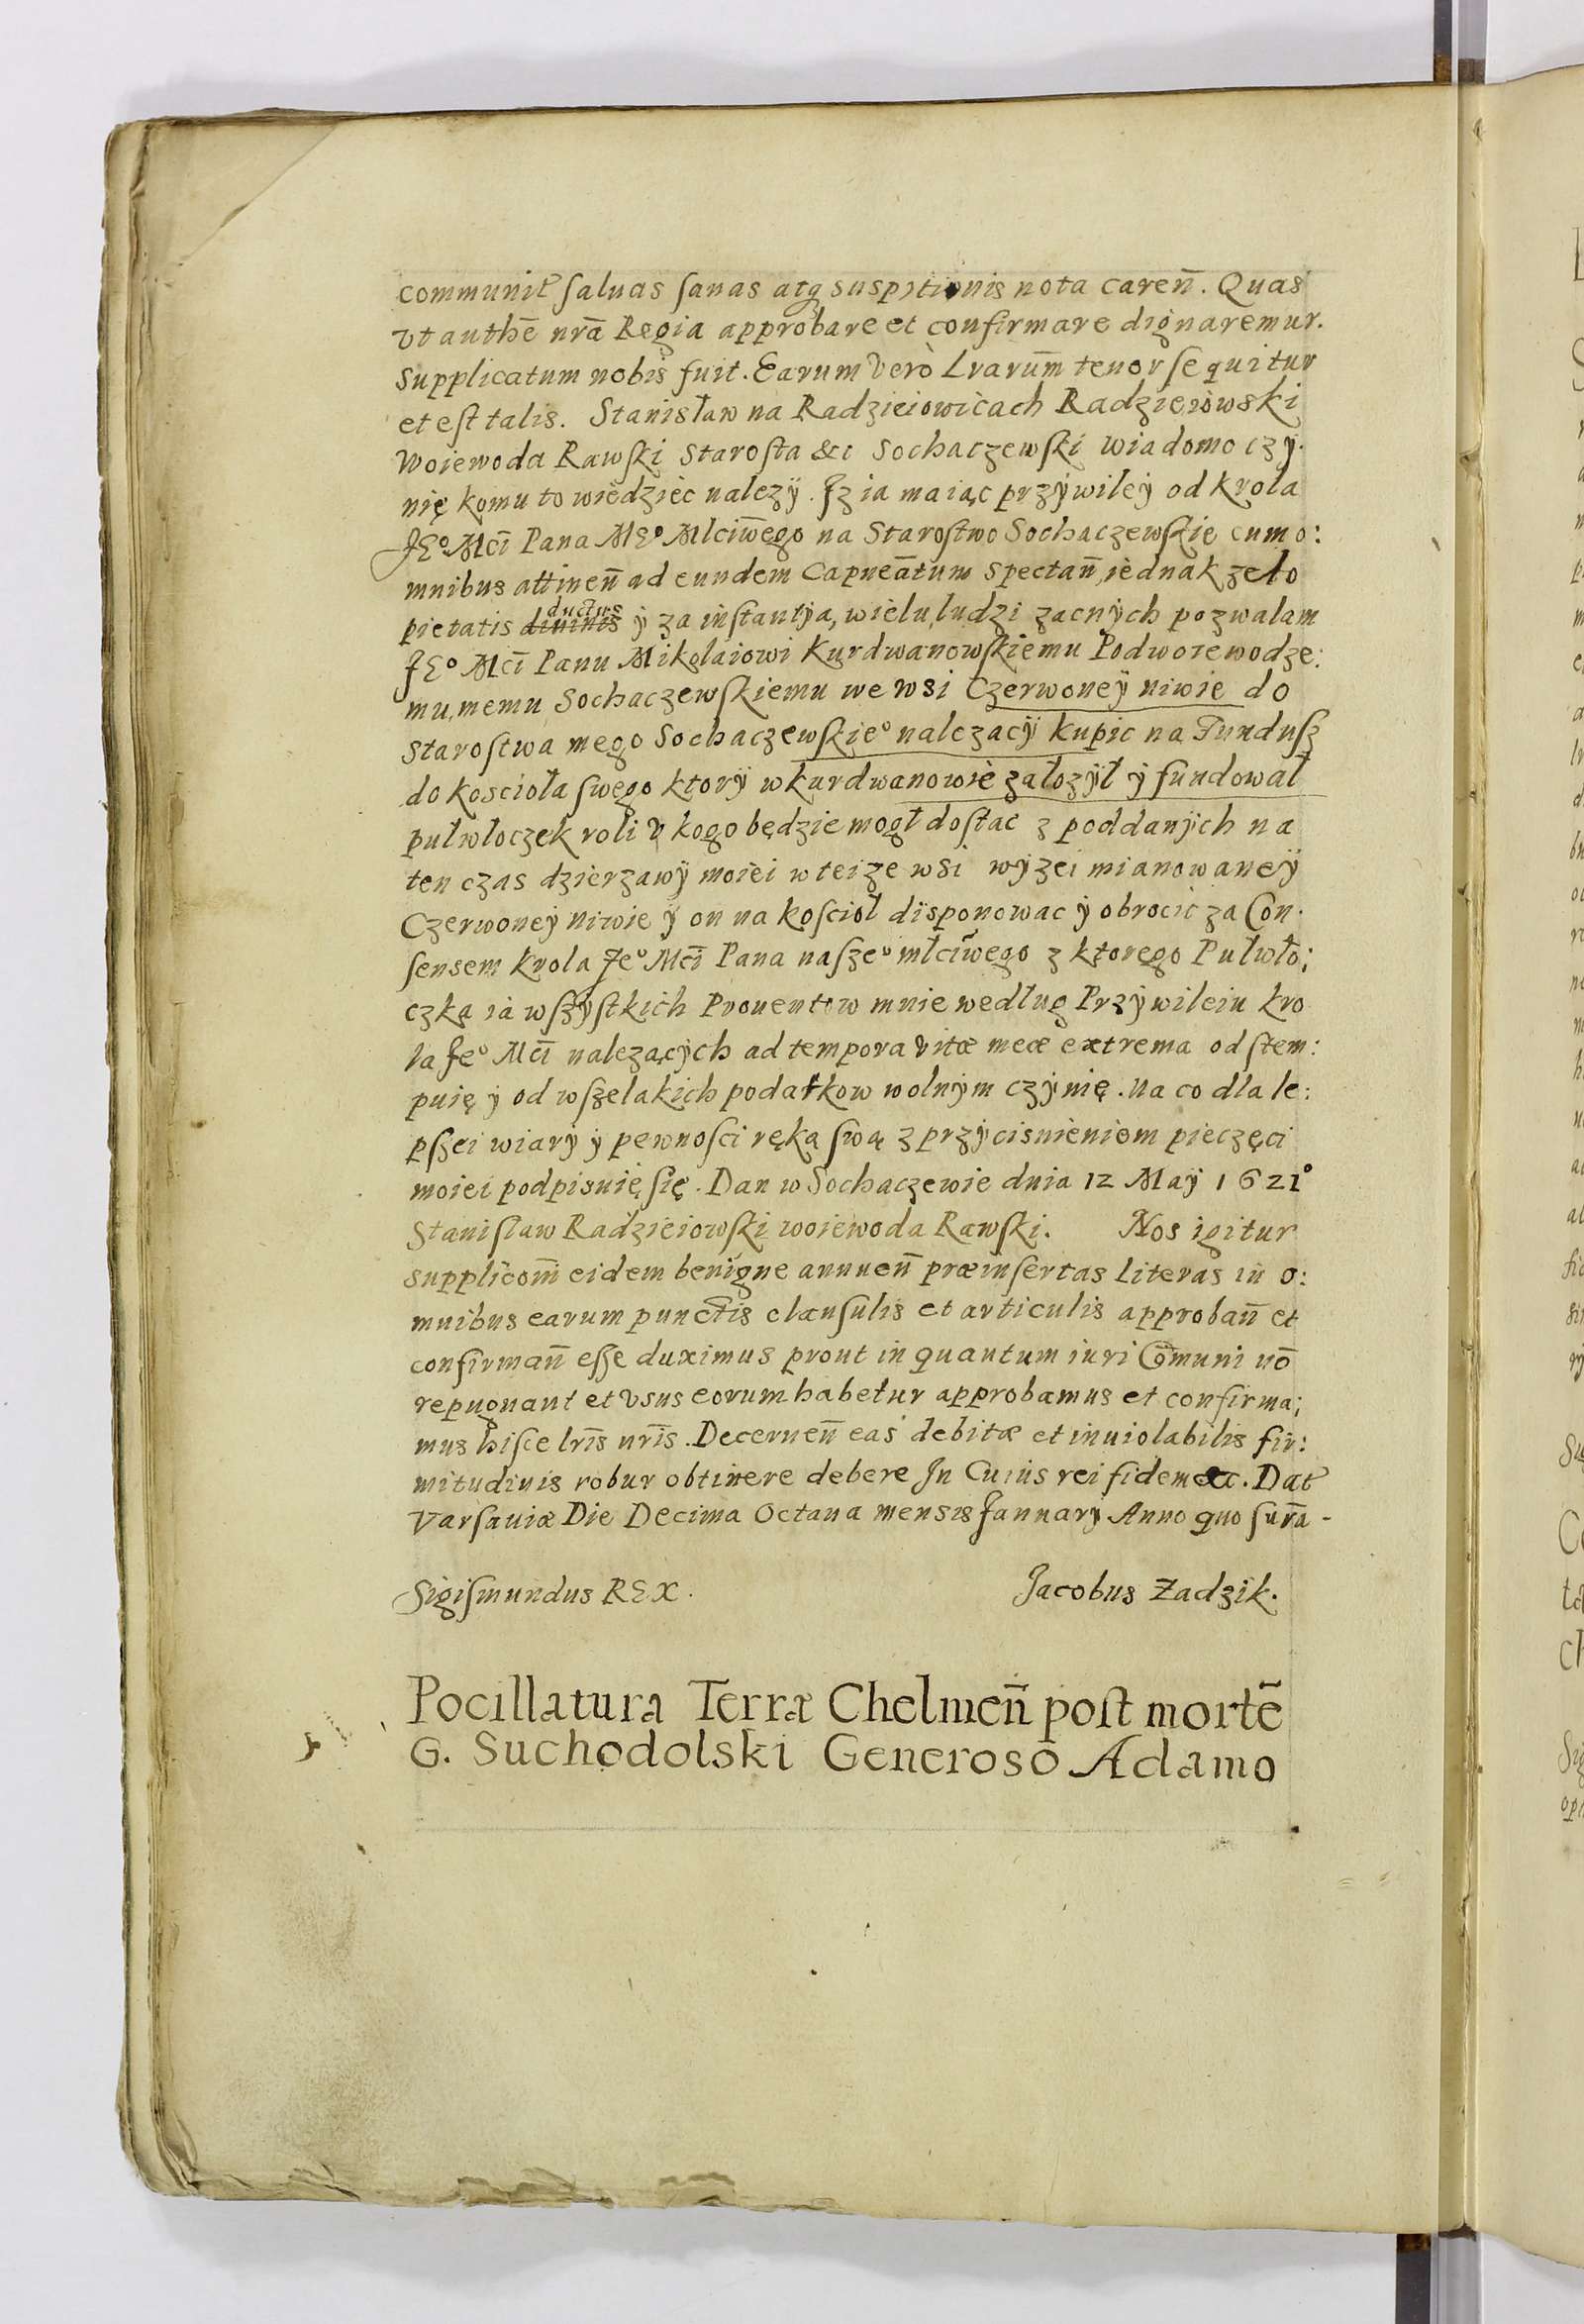 communitˀ saluas sanas atq suspitionis nota careñ. Quas
vt authē nrā Regia approbare et confirmare dignaremur.
supplicatum nobis fuit. Earum verò Lrarum̄ tenor sequitur
et est talis. Stanisław na Radzieiowicach Radzieiowski
Woiewoda Rawski Starosta &c Sochaczewski wiadomo czÿ.
nię komu to wiedziec nalezÿ. Jz ia maiąc przÿwileÿ od krola
JEº Mci̅ Pana MEº Mlciw̅ego na Starostwo Sochaczewskie cum o:
mnibus attineñ ad eundem Capneātum spectañ, iednak zelo
pietatis ductus ÿ za instantÿa, wielu ludzi zacnÿch pozwalam
JEº Mci̅ Panu Mikolaiowi Kurdwanowskiemu Podwoiewodze:
mu, memu Sochaczewskiemu we wsi Czerwoneÿ niwie do
starostwa mego Sochaczewskieº nalezacÿ kupic na Fundusz
do kosciola swego ktorÿ w kurdwanowie załozÿł ÿ fundował
pulwłoczek roli v kogo będzie mogł dostac z poddanÿch na
ten czas dzierzawÿ moiei w teize wsi wÿzei mianowaneÿ
Czerwoneÿ niwie ÿ on na kosciol disponowac ÿ obrocic za Con.
sensem krola Jeº Mci̅ Pana naszeº młciw̅ego z ktorego Pulwło;
czka ia wszÿstkich Prouentow mnie według Przÿwileiu kro
la Jeº Mci̅ nalezącÿch ad tempora vitæ meæ extrema odstem:
puię ÿ od wszelakich podatkow wolnÿm czÿnię. Na co dla le:
pszei wiarÿ ÿ pewnosci ręką swą z przÿcisnieniem pieczęci
moiei podpisuię się. Dan w Sochaczewie dnia 12 Maÿ 1621º
Stanislaw Radzieiowski woiewoda Rawski. Nos igitur
supplicom̄i eidem benigne annueñ præinsertas literas in o:
mnibus earum punctis clausulis et articulis approbañ et
confirmañ esse duximus prout in quantum iuri Com̄muni nō
repugnant et vsus eorum habetur approbamus et confirma;
mus hisce lris̄ nris̄. Decerneñ eas debitæ et inuiolabilis fir:
mitudinis robur obtinere debere Jn Cuius rei fidem &c. Datˀ
Varsauiæ Die Decima Octaua mensis Januarÿ Anno quo sur̄a -
Sigismundus REX.
Jacobus Zadzik.
Pocillatura Terræ Chelmeñ post mortē
G. Suchodolski Generoso Adamo